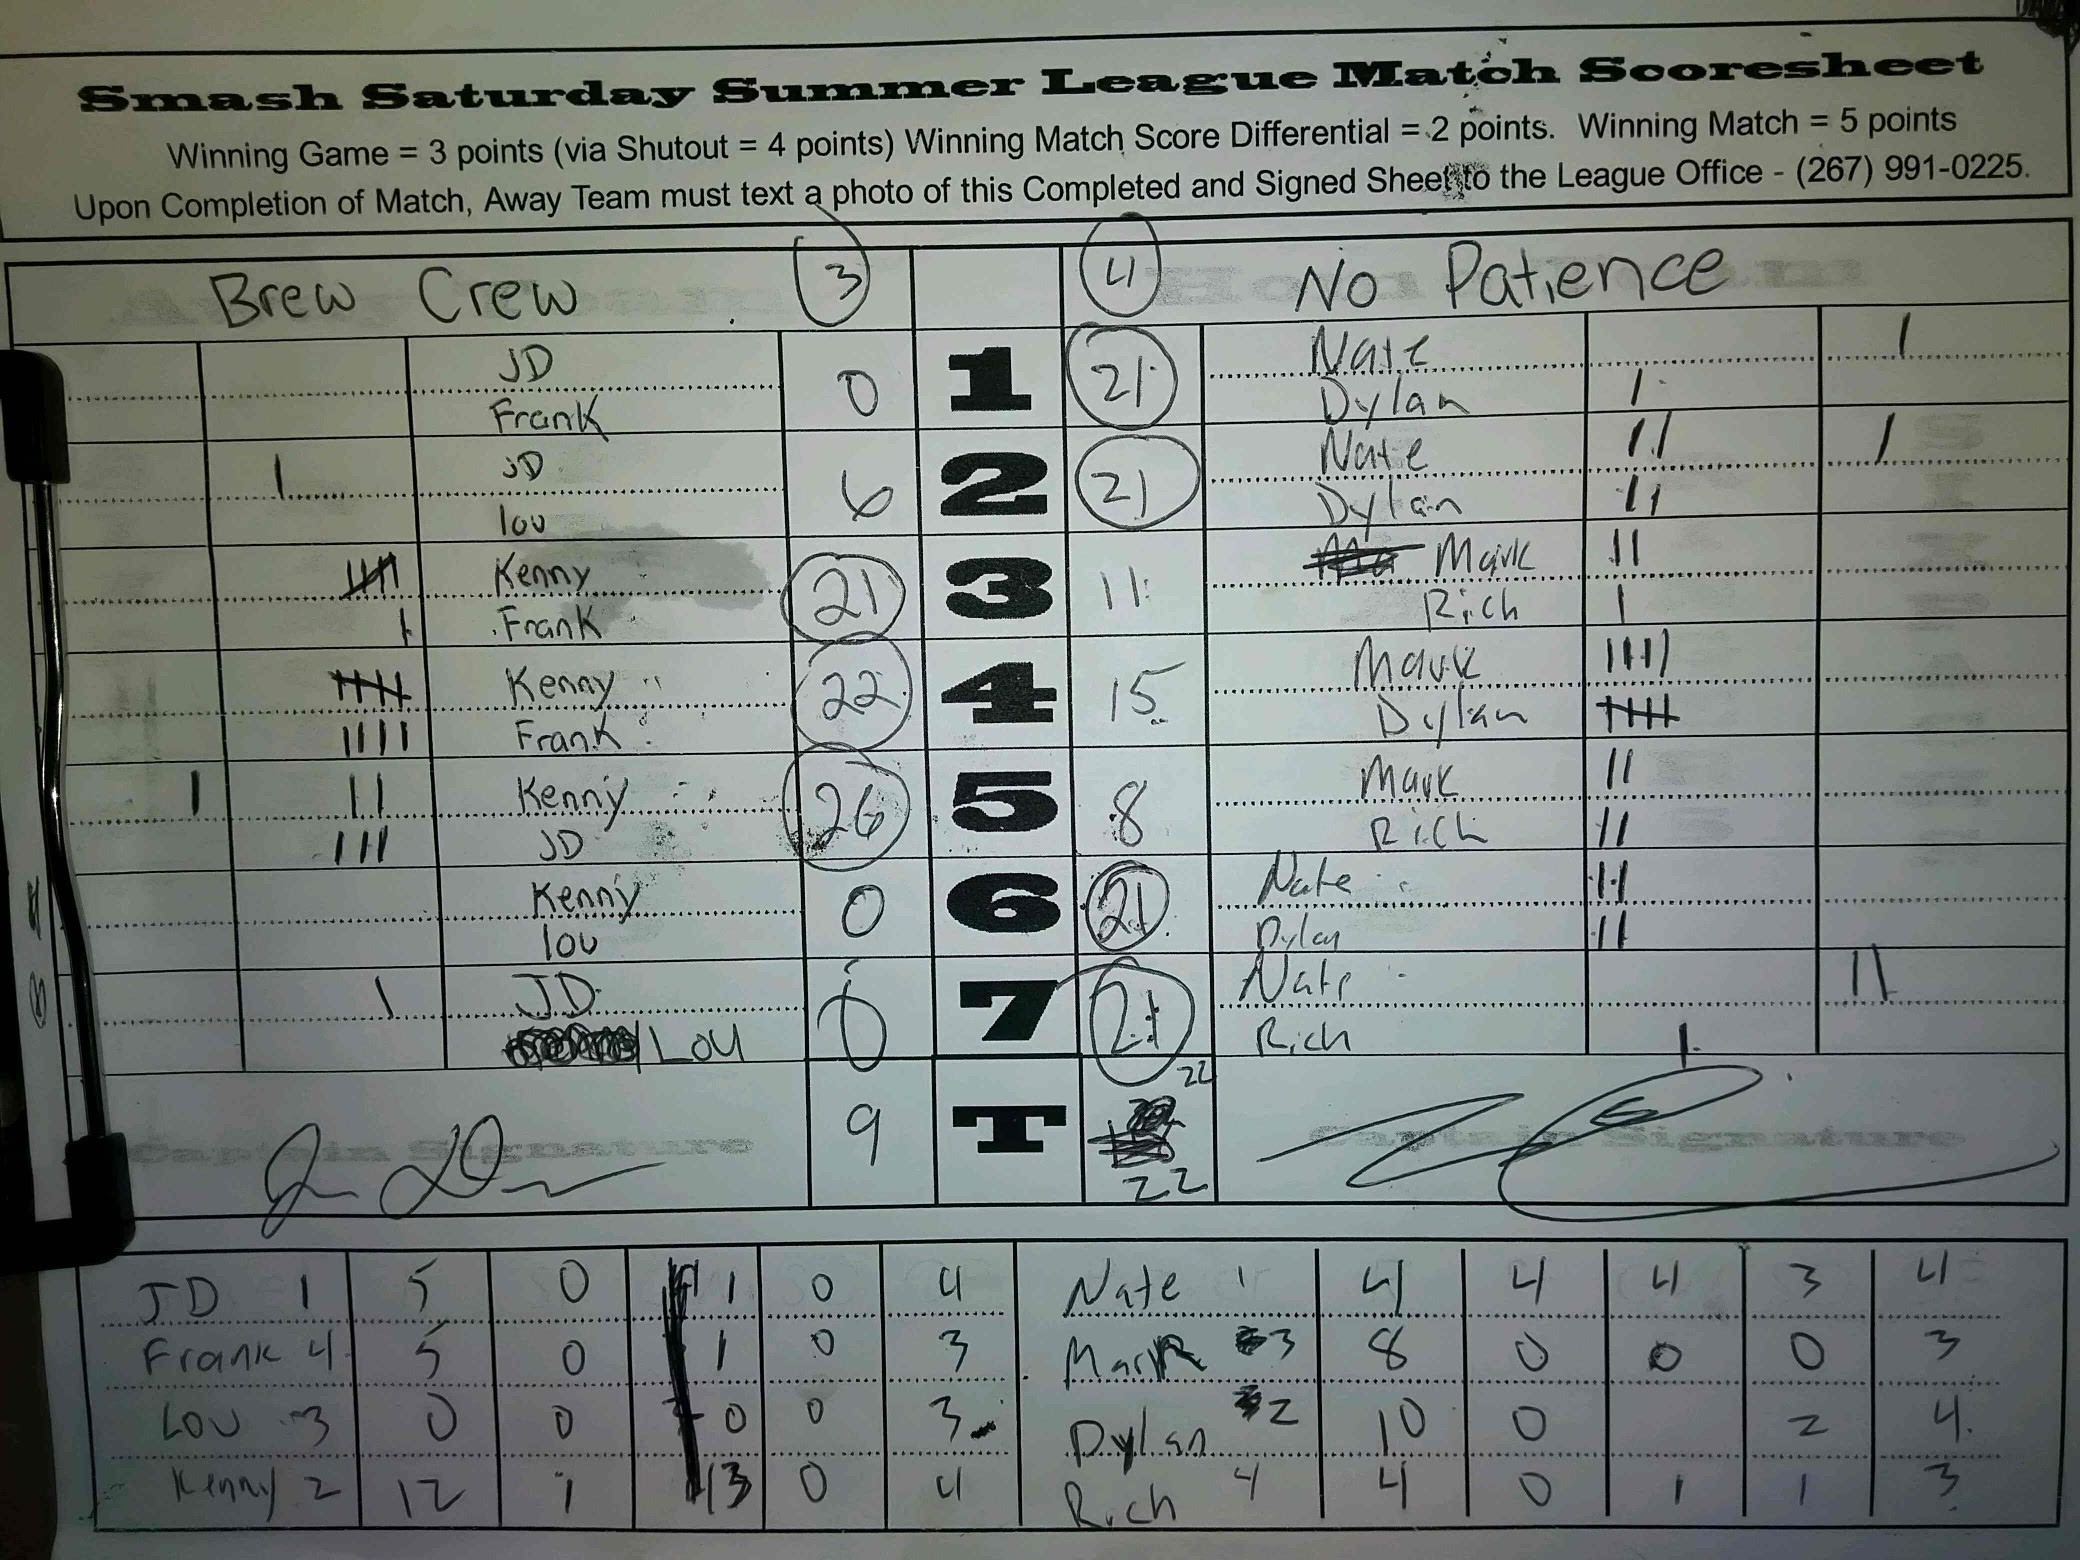 Smash Saturday Summer League Match Scoresheet
Winning Game = 3 points (via Shutout = 4 points) Winning Match Score Differential = 2 points. Winning Match = 5 points
Upon Completion of Match, Away Team must text a photo of this Completed and Signed Sheet to the League Office - (267) 991-0225.
Brew Crew 3 4 No Patience
JD 0 1 21 Nate
Frank Dylan
JD 6 2 21 Nate
lou Dylan
Kenny 21 3 11 Mark
Frank Rich
Kenny 22 4 15 Mark
Frank Dylan
Kenny 26 5 8 Mark
JD Rich
Kenny 0 6 21 Nate
lou Dylan
JD 7 21 Nate
LOU Rich
22
9 T
22
Captain Signature Captain Signature
JD 1 5 0 1 0 4 Nate 1 4 4 4 3 4
Frank 4 5 0 1 0 3 Mark 3 8 0 0 0 3
LOU 3 0 0 0 0 3 Dylan 2 10 0 2 4
Kenny 2 12 1 3 0 4 Rich 4 4 0 1 1 3